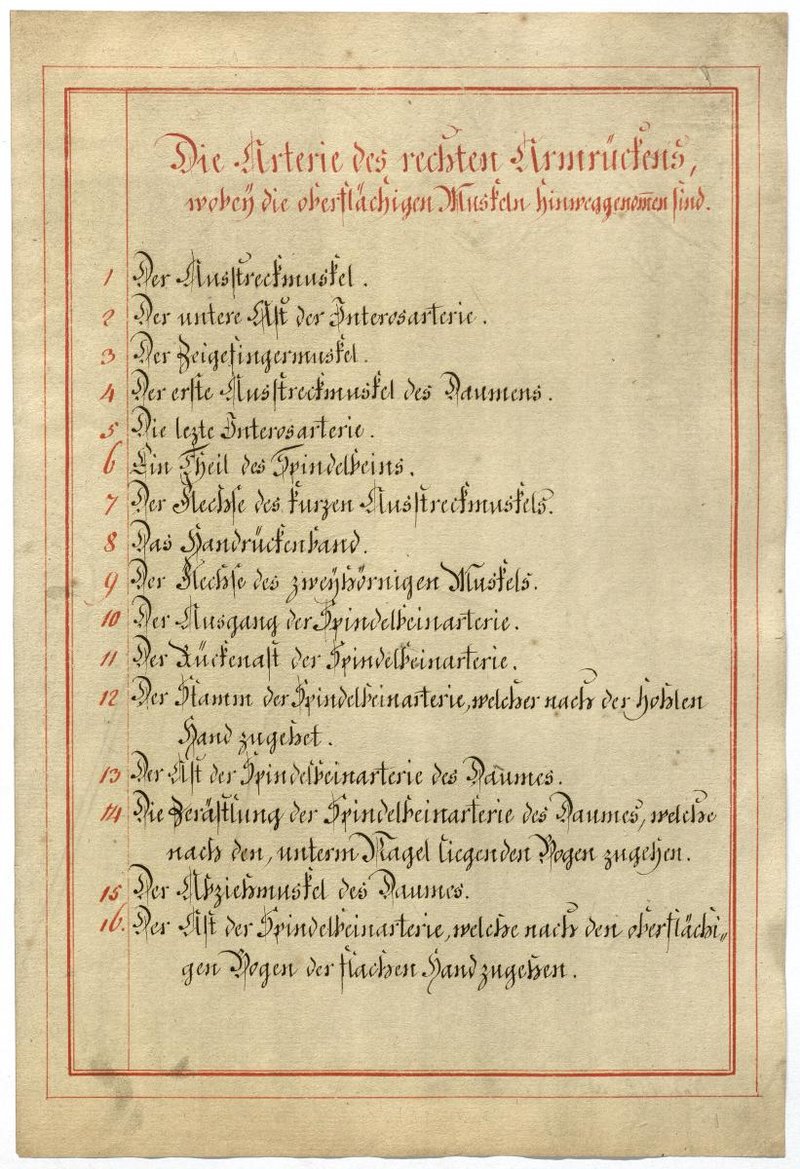 Die Arterie des rechten Armrückens,
wobey die oberflächigen Muskeln hinweggenom̄en sind.
1 Der Ausstreckmuskel.
2 Der untere Ast der Interosarterie.
3 Der Zeigefingermuskel.
4 Der erste Ausstreckmuskel des Daumens.
5 Die lezte Interosarterie.
6 Ein Theil des Spindelbeins.
7 Der Flechse des kurzen Ausstreckmuskels.
8 Das Handrückenband.
9 Der Flechse des zweyhörnigen Muskels.
10 Der Ausgang der Spindelbeinarterie.
11 Der Rückenast der Spindelbeinarterie.
12 Der Stamm der Spindelbeinarterie, welcher nach der hohlen
Hand zugehet.
13 Der Ast der Spindelbeinarterie des Daumes.
14 Die Verästlung der Spindelbeinarterie des Daumes, welche
nach den, unterm Nagel liegenden Bogen zugehen.
15 Der Abziehmuskel des Daumes.
16. Der Ast der Spindelbeinarterie, welche nach den oberflächi„
gen Bogen der flachen Hand zugehen.